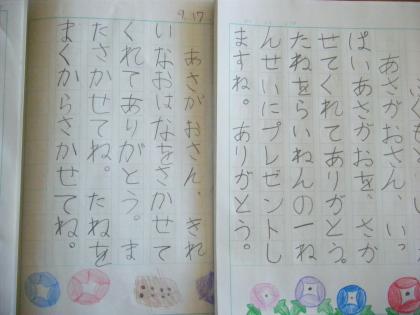 あさがおさん、いっ
ぱいあさがおを、さか
せてくれてありがとう。
たねをらいねんの一ね
んせいにプレゼントし
ますね。ありがとう。
9.17
あさがおさん、きれ
いなおはなをさかせて
くれてありがとう。ま
たさかせてね。たねを
まくからさかせてね。